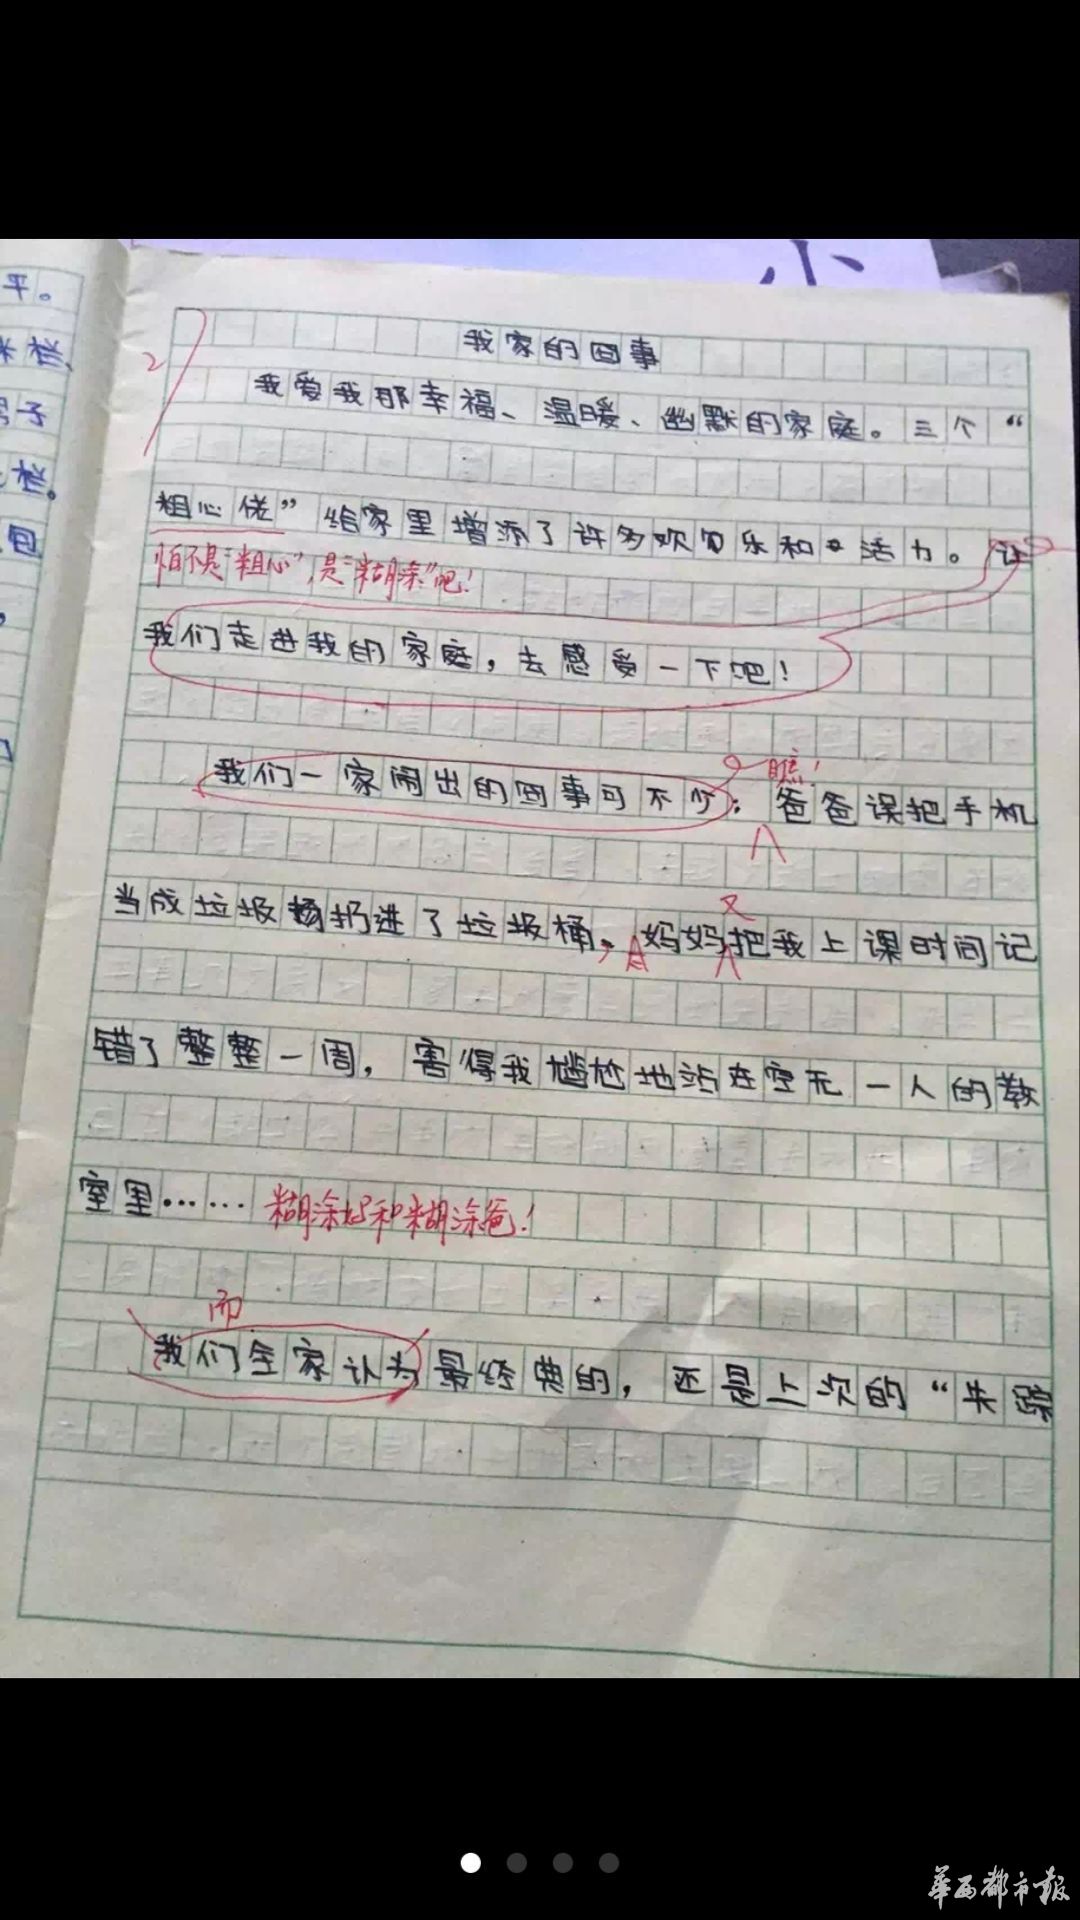 平。
栏
子
栏。
包
我家的囧事
2
我爱我那幸福、温暖、幽默的家庭。三个“
粗心佬”给家里增添了许多欢乐和活力。让
怕不是“粗心”,是“糊涂”吧!
我们走进我的家庭,去感受一下吧!
瞧!
我们一家闹出的囧事可不少:爸爸误把手机
又
当成垃圾扔进了垃圾桶,妈妈把我上课时间记
错了整整一周,害得我尴尬地站在空无一人的教
室里……糊涂妈和糊涂爸!
而
我们全家认为最经典的,还是上次的“失踪
華西都市報